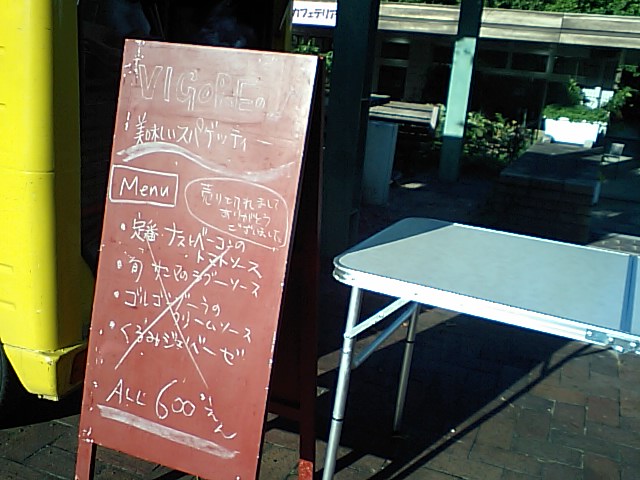 カフェテリア
VIGOREの
美味しいスパゲッティー
Menu
売り切れまして
ありがとう
ございました
・定番 ナスとベーコンの
トマトソース
・旬
ラグーソース
・ゴルゴンゾーラの
クリームソース
・くるみジェノベーゼ
ALL 600えん